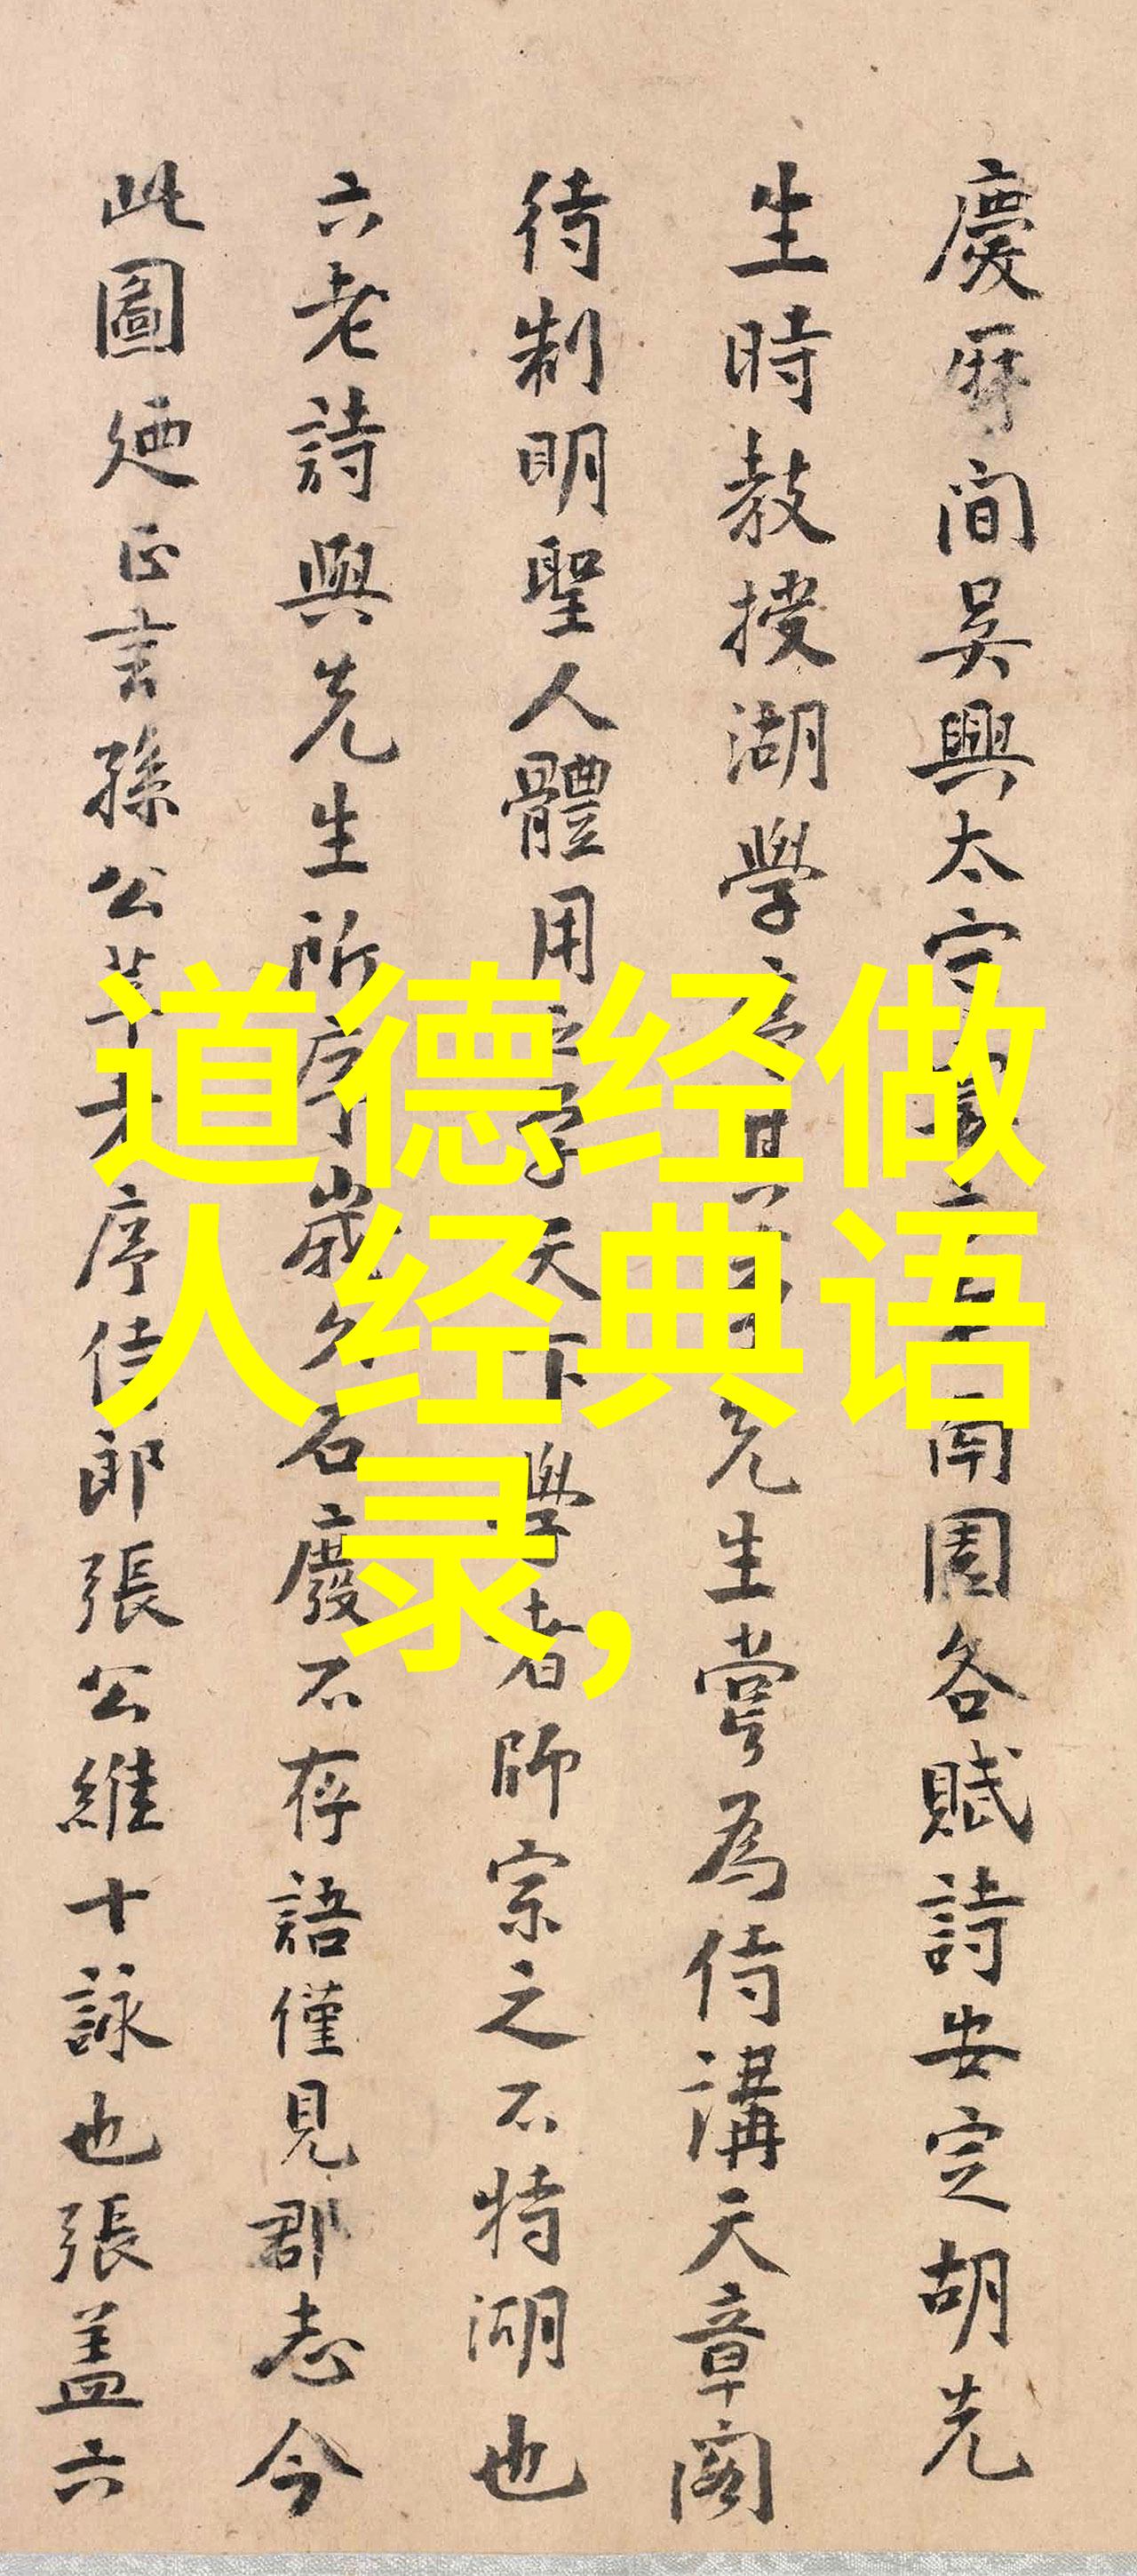 慶曆間吳興太守
南園各賦詩安定胡先
生時教授湖學
先生嘗為侍講天章閣
待制明聖人體用之學天下學者師宗之不特湖也
六老詩與先生所序歲久石廢不存語僅見郡志今
此圖廼正言孫公莘老序侍郎張公維十詠也張蓋六
道德经做
人经典语
录，